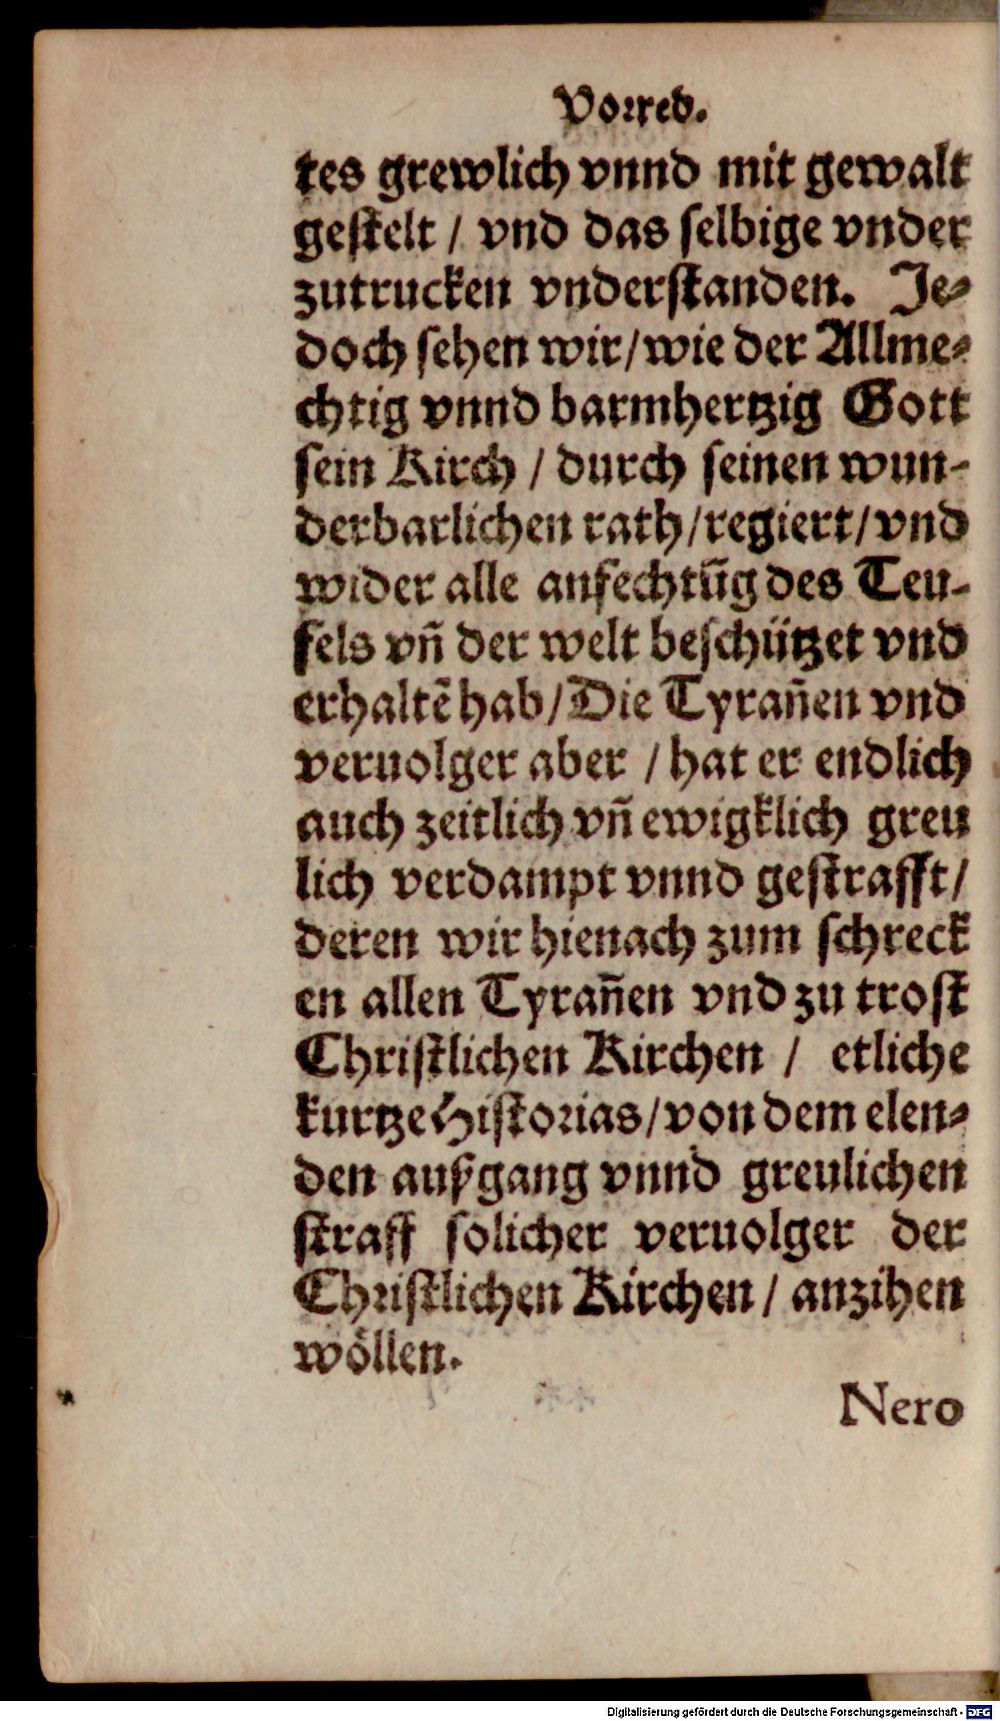 Vorred.
tes grewlich vnnd mit gewalt
gestelt / vnd das selbige vnder
zutrucken vnderstanden. Je⸗
doch sehen wir/wie der Allme⸗
chtig vnnd barmhertzig Gott
sein Kirch / durch seinen wun-
derbarlichen rath/regiert/vnd
wider alle anfechtūg des Teu-
fels vñ der welt beschützet vnd
erhaltē hab/Die Tyrañen vnd
veruolger aber / hat er endlich
auch zeitlich vñ ewigklich greu
lich verdampt vnnd gestrafft/
deren wir hienach zum schreck
en allen Tyrañen vnd zu trost
Christlichen Kirchen / etliche
kurtze Historias/von dem elen⸗
den außgang vnnd greulichen
straff solicher veruolger der
Christlichen Kirchen / anzihen
wöllen.
Nero
Digitalisierung gefördert durch die Deutsche Forschungsgemeinschaft - DFG